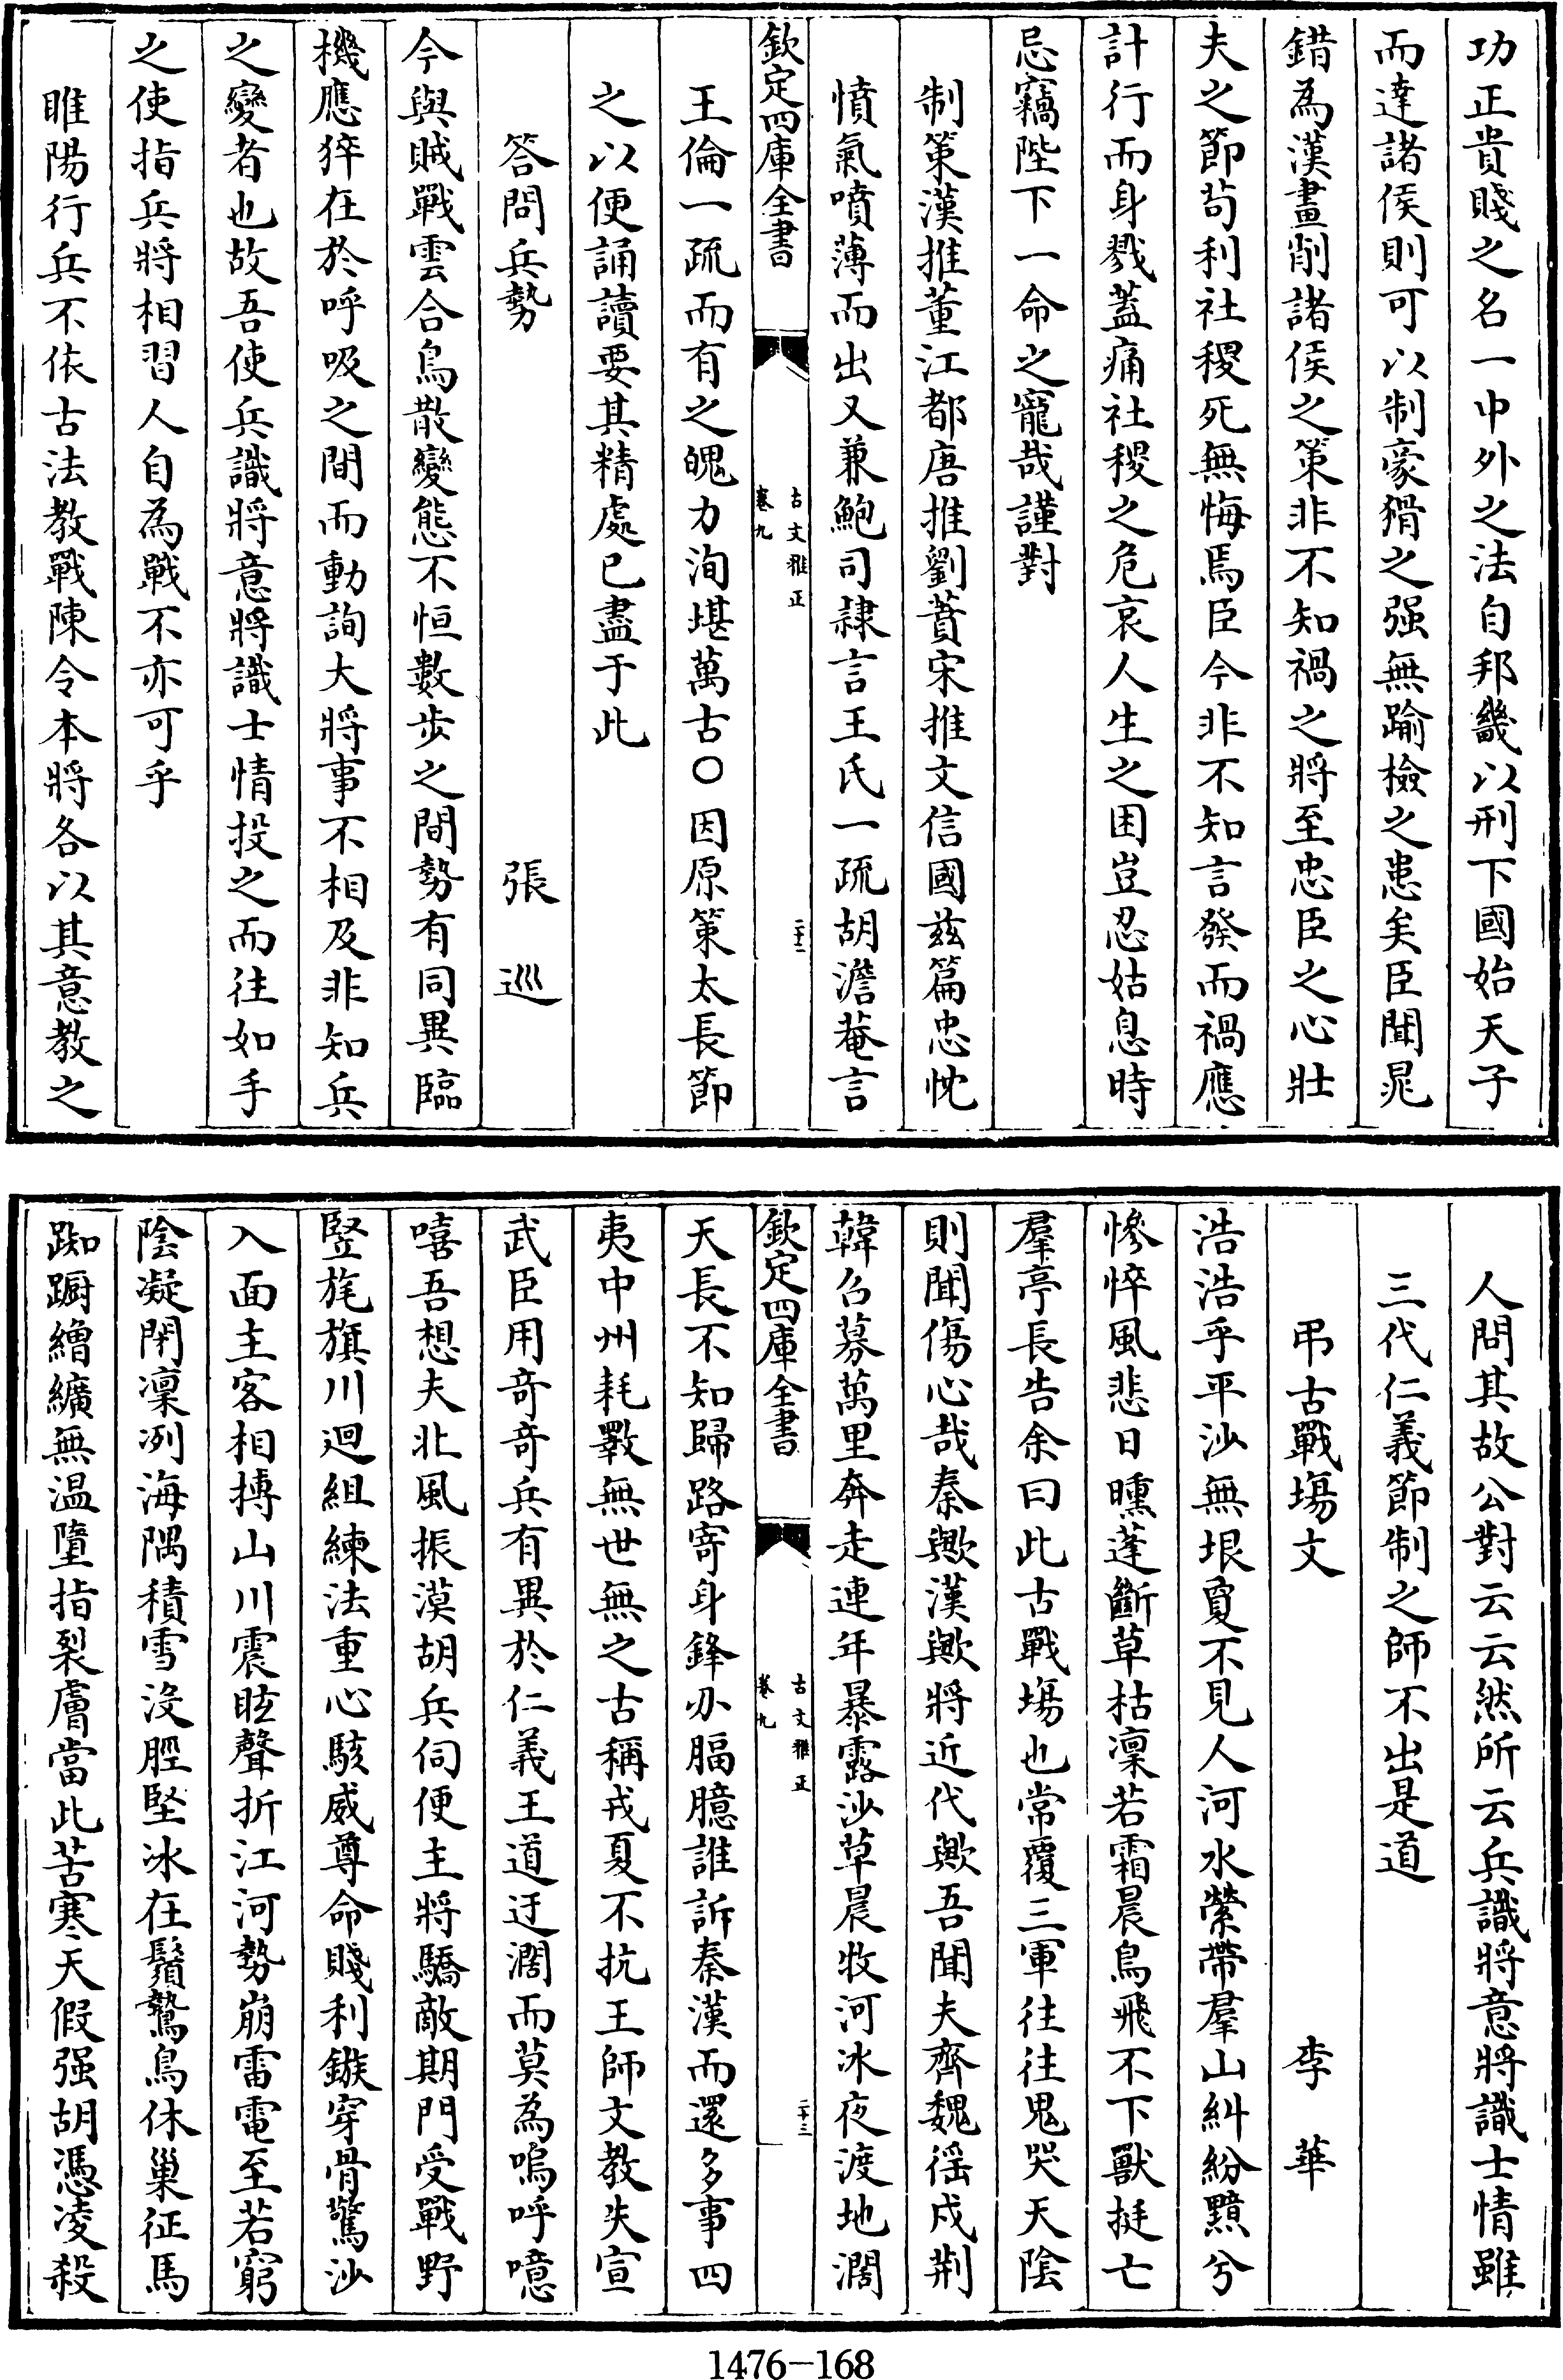 功正貴賤之名一中外之法自邦畿以刑下國始天子
而達諸侯則可以制豪猾之强無踰檢之患矣臣聞晁
錯為漢畫削諸侯之策非不知禍之將至忠臣之心壯
夫之節苟利社稷死無悔焉臣今非不知言發而禍應
計行而身戮蓋痛社稷之危哀人生之困豈忍姑息時
忌竊陛下一命之寵哉謹對
制策漢推董江都唐推劉蕡宋推文信國兹篇忠忱
憤氣噴薄而出又兼鮑司隷言王氏一疏胡澹菴言
欽定四庫全書
古文雅正
卷九
二十二
王倫一疏而有之魄力洵堪萬古○因原策太長節
之以便誦讀要其精處已盡于此
答問兵勢 張巡
今與賊戰雲合鳥散變態不恒數步之間勢有同異臨
機應猝在於呼吸之間而動詢大將事不相及非知兵
之變者也故吾使兵識將意將識士情投之而往如手
之使指兵將相習人自為戰不亦可乎
睢陽行兵不依古法教戰陳令本將各以其意教之
人問其故公對云云然所云兵識將意將識士情雖
三代仁義節制之師不出是道
弔古戰塲文 李華
浩浩乎平沙無垠敻不見人河水縈帶羣山糾紛黯兮
慘悴風悲日曛蓬斷草枯凜若霜晨鳥飛不下獸挺亡
羣亭長告余曰此古戰塲也常覆三軍往往鬼哭天陰
則聞傷心哉秦歟漢歟將近代歟吾聞夫齊魏徭戍荆
韓召募萬里奔走連年暴露沙草晨牧河冰夜渡地濶
欽定四庫全書
古文雅正
卷九
二十三
天長不知歸路寄身鋒刃腷臆誰訴秦漢而還多事四
夷中州耗斁無世無之古稱戎夏不抗王師文教失宣
武臣用奇奇兵有異於仁義王道迂濶而莫為嗚呼噫
嘻吾想夫北風振漠胡兵伺便主將驕敵期門受戰野
竪旄旗川迴組練法重心駭威尊命賤利鏃穿骨驚沙
入面主客相搏山川震眩聲折江河勢崩雷電至若窮
陰凝閉凜冽海隅積雪沒脛堅冰在鬚鷙鳥休巢征馬
踟蹰繒纊無温墮指裂膚當此苦寒天假强胡憑凌殺
1476-168